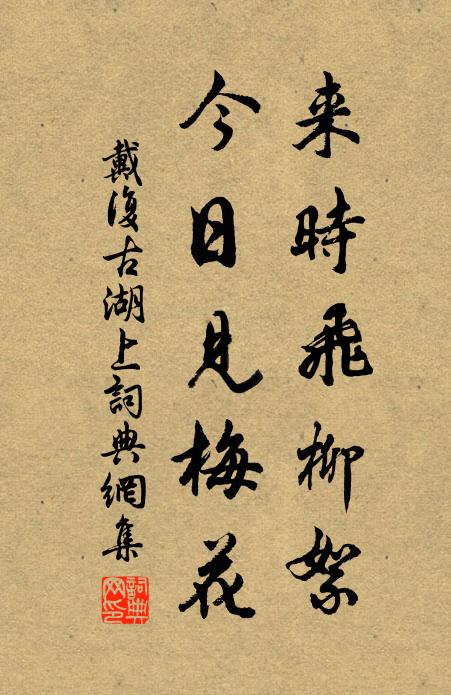 来時飛柳絮
今日見梅花
戴復古湖上詞典網集
詞典网印